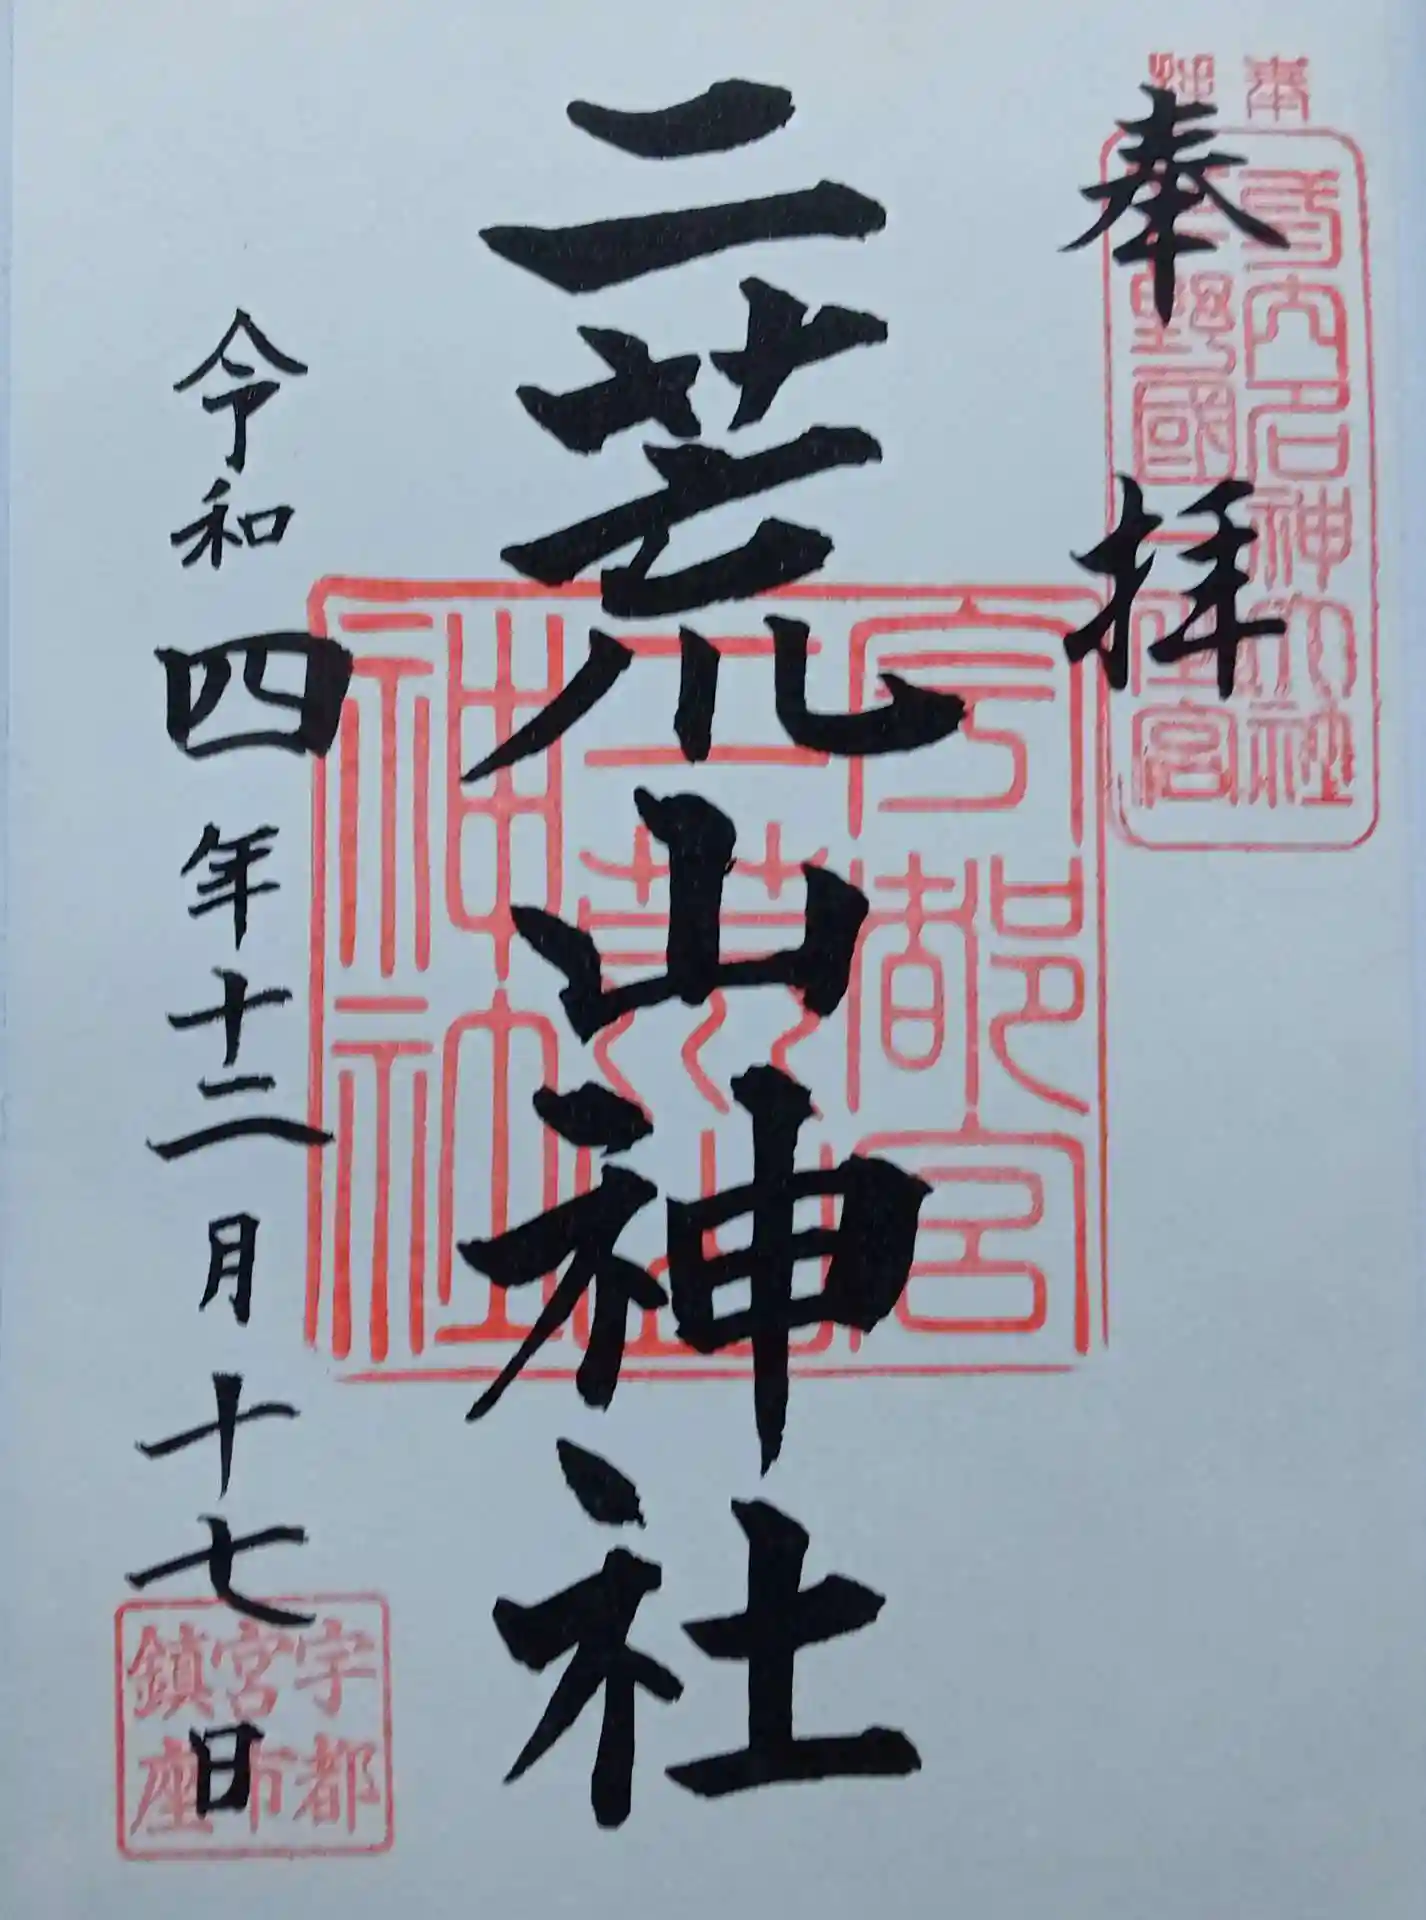 奉拝
延喜式内名神大社
下野國一之宮
二荒山神社
宇都宮
二荒山
神社
令和四年十二月十七日
宇都
宮市
鎮座